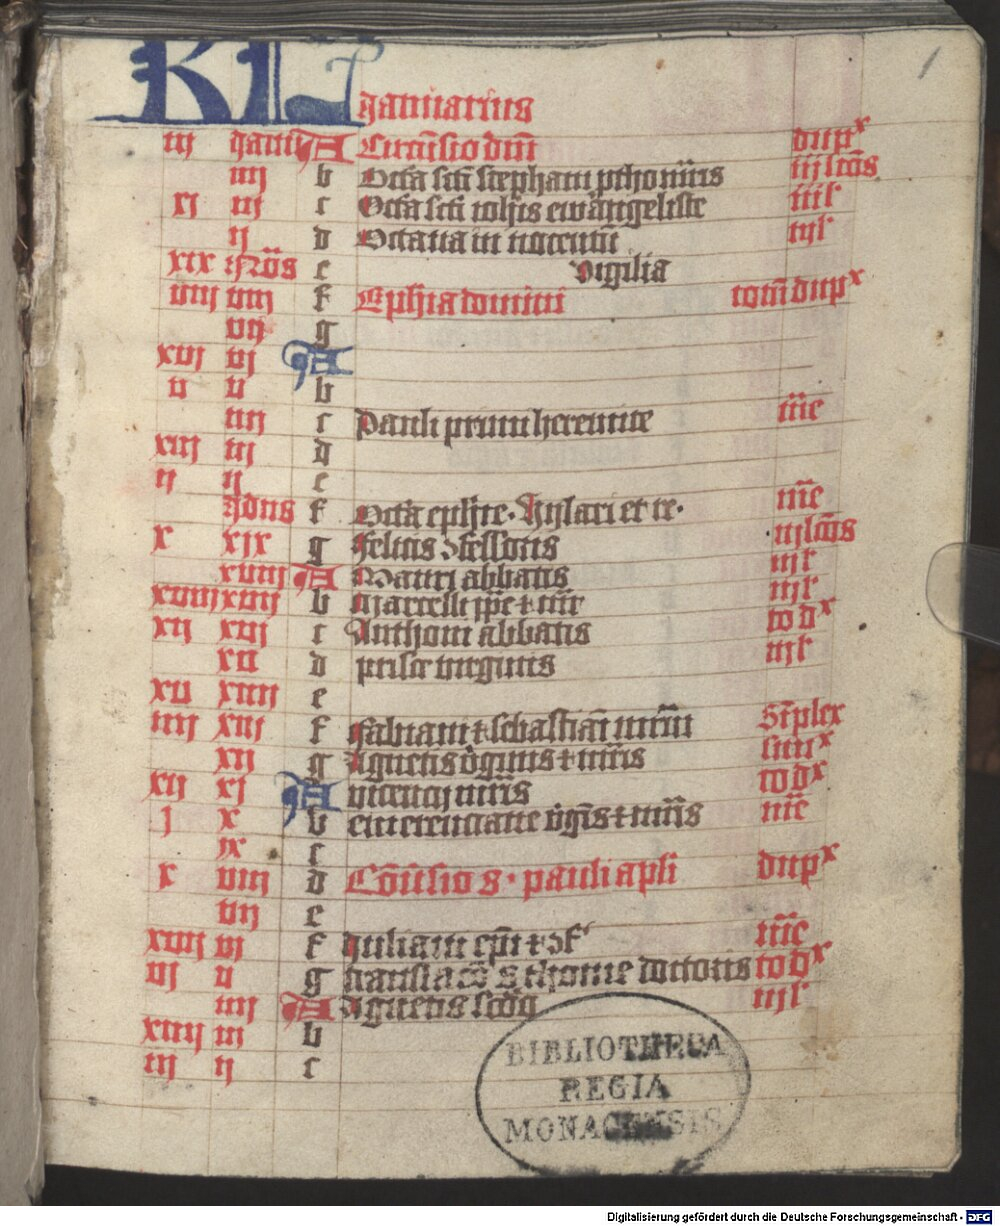 1
KL Januarius
iij Janu A Circu̅sio dn̅i dupx
iiij b Octa̅ sc̅i stephani ptho mr̅is iij lc̅o̅s
xi iij c Octa̅ sc̅i ioh̅is ewangeliste iij l̅
ij d Octaua in nocentu̅ iij l̅
xix No̅s e vigilia
viij viij f Eph̅ia domini totu̅ dupx
vij g
xvj vj A
v v b
iiij c Pauli primi heremite me̅
xiij iij d
ij ij e
Jdus f Octa̅ eph̅ie. hylarij et re. me̅
x xix g Felicis ɔfessoris iij lc̅o̅s
xviij A Mauri abbatis iij l̅
xviij xvij b Marcelli pp̅e ⁊ mr̅is iij l̅
vij xvj c Anthoni abbatis to dx
xv d prisce virginis iij l̅
xv xiiij e
iiij xiij f Fabiani ⁊ sebastiani mr̅m Si̅plex
xij g Agnetis v̅ginis ⁊ mr̅is simx
xij xj A vincencij mr̅is to dx
j x b emerenciane vg̅is ⁊ mr̅is me̅
ix c
ix viij d Co̅u̅sio s. pauli apl̅i dupx
vij e
xvij vj f Juliani ep̅i ⁊ ɔf me̅
vj v g translaco̅ s. thome doctoris to dx
iiij A Agnetis sc̅do iij l̅
xiiij iij b
iij ij c
BIBLIOTHECA
REGIA
MONACENSIS
Digitalisierung gefördert durch die Deutsche Forschungsgemeinschaft - DFG